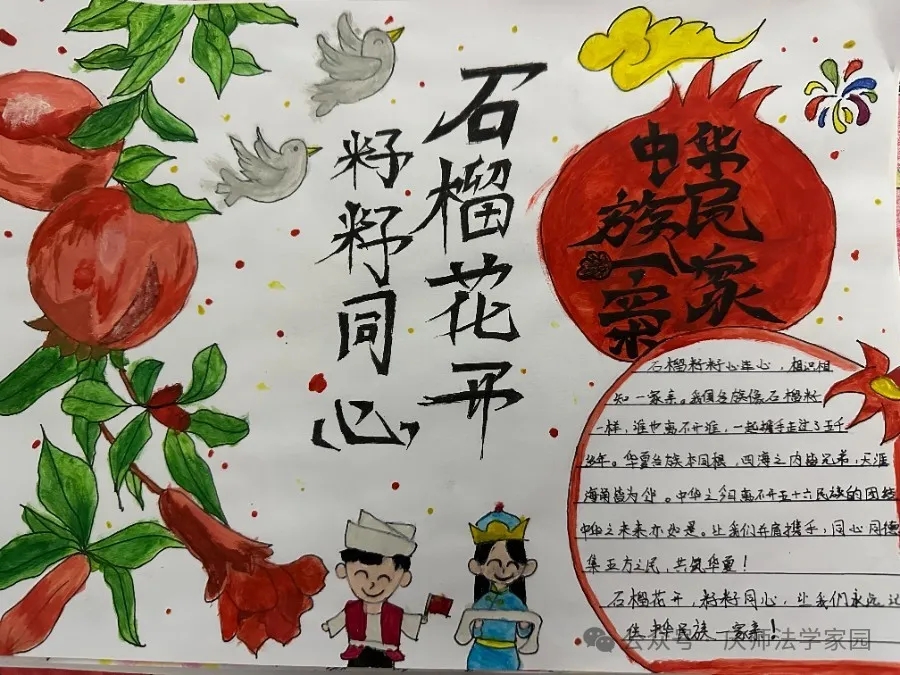 石榴花开
籽籽同心
中华
民族
一家
亲
石榴籽籽心连心，相识相
知一家亲。我国各族像石榴籽
一样，谁也离不开谁，一起携手走过了五千
多年。华夏各族本同根，四海之内皆兄弟，天涯
海角皆为邻。中华之今日离不开五十六民族的团结
中华之未来亦如是。让我们并肩携手，同心同德
集五方之民，共筑华夏！
石榴花开，籽籽同心，让我们永远记
住中华民族一家亲！
公众号·庆师法学家园